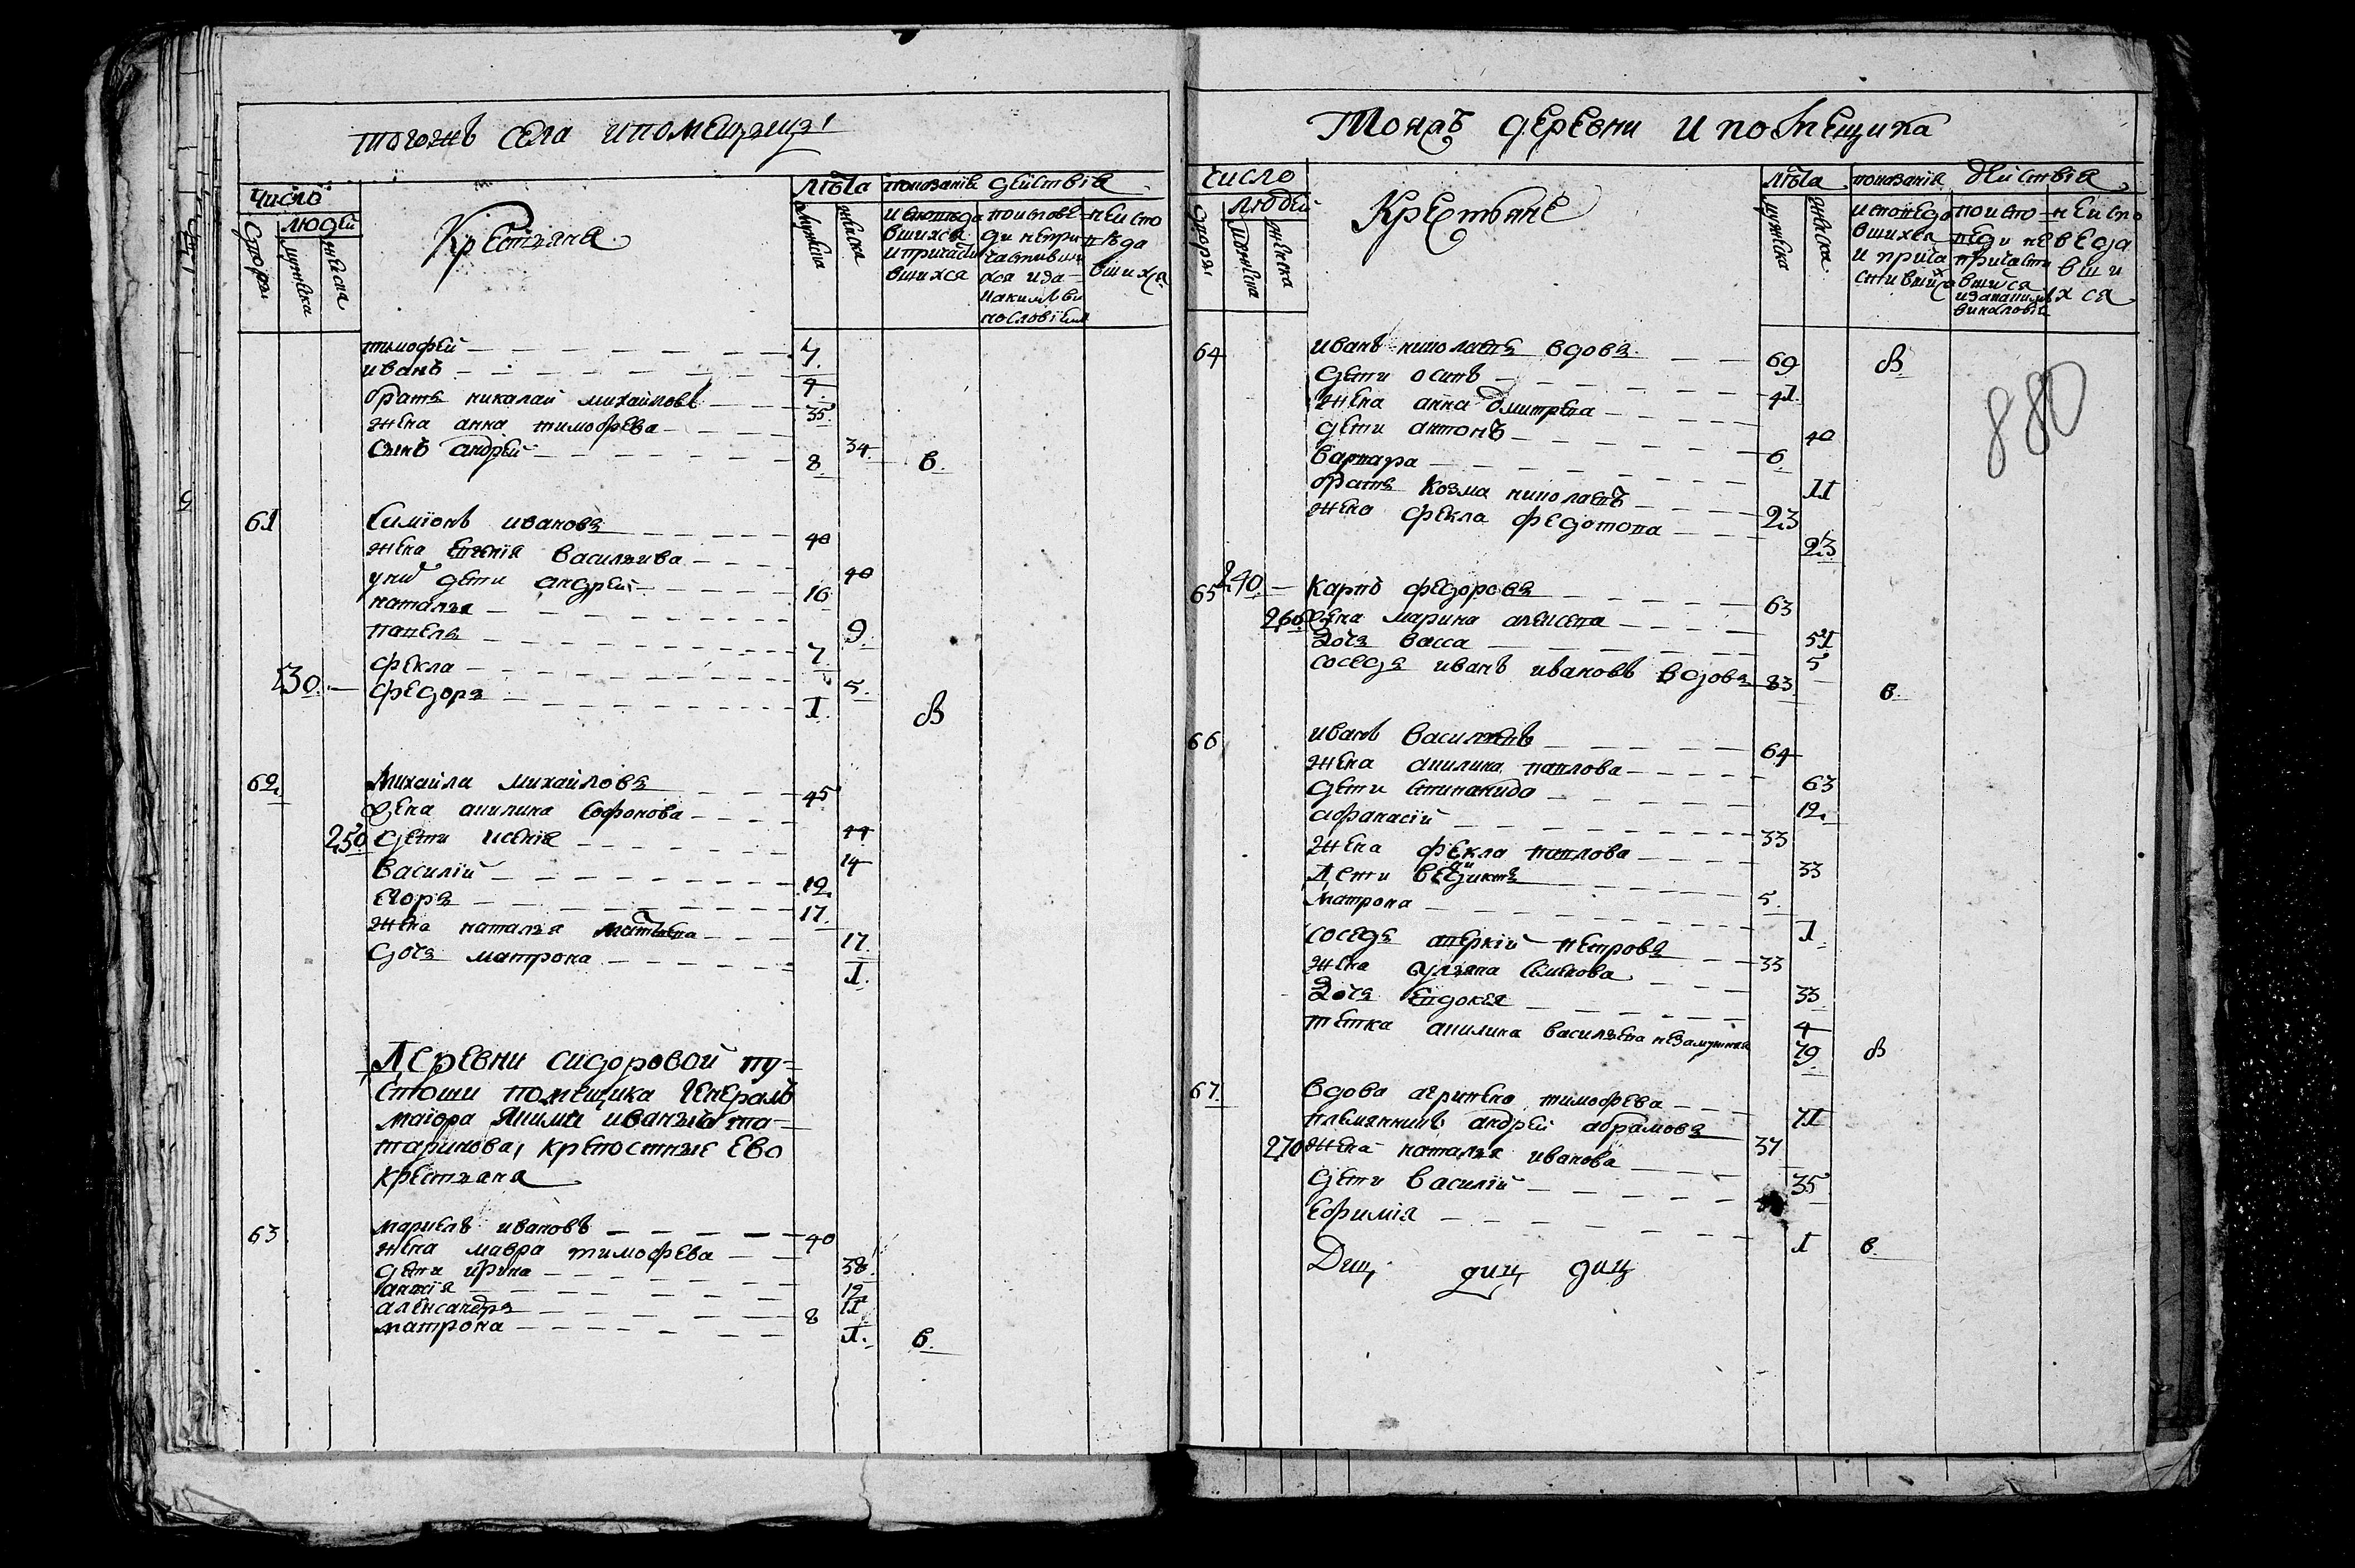 тогожъ села ипомещицы
число
людей
Дворы
мужеска
женска
Крестьяня
лѣта
мужеска
женска
показаніе действія
исповеда
вшихся
ипричасти
вшихся
поиспове
ди непри
частивши
хся иза
какимъ ви
нословіемъ
неиспо
ведо
вшихся
тимофей 7
иванъ 4
братъ николаи михайловъ 35
жена анна тимофева 34
сынъ андрей 8 в
61 Симіонъ ивановъ 40
жена Евгенія василиива 40
унихъ дети андрей 16
наталья 9
павелъ 7
фекла 5
230 федоръ 1 в
62 Михайла михайловъ 45
жена акилина софонова 44
250 дети ксенія 14
василій 12
егоръ 17
жена наталья матвева 17
дочь матрона 1
Деревни сидоровой пу=
стоши помещика генералъ
маіора Якима иваныча та=
таринова, крепостные ево
крестьяня
63 маркелъ ивановъ 40
жена мавра тимофева 38
дети ирина 12
анисія 11
александръ 8
матрона 1 в
Тояжъ деревни и помещика
число
людей
Дворы
мужеска
женска
Крестьяне
лѣта
мужеска
женска
показанія действія
исповедо
вшихся
и прича
стившихся
поиспо
веди не
причасти
вшися
изакакимъ
винословіе
неиспо
веда
вши
хся
880
64 иванъ николаевъ вдовъ 69 в
дети осипъ 41
жена анна дмитрева 40
дети антонъ 6
варвара 11
братъ козма николаевъ 23
жена фекла федотова 23
65 240 карпъ федоровъ 63
260 жена марина алексева 51
дочь васса 5
соседъ иванъ ивановъ вдовъ 83 в
66 иванъ василиевъ 64
жена акилина павлова 63
дети степанида 12
афанасій 33
жена фекла павлова 33
Дети ведиктъ 5
матрона 1
соседъ аверкій петровъ 33
жена ульяна семенова 33
дочь Евдокея 4
тетка акилина васильева незамужняя 79 в
67 вдова агрипена тимофева 71
племянникъ андрей абрамовъ 37
270 жена наталья иванова 35
дети василій
Ефимія 1 в